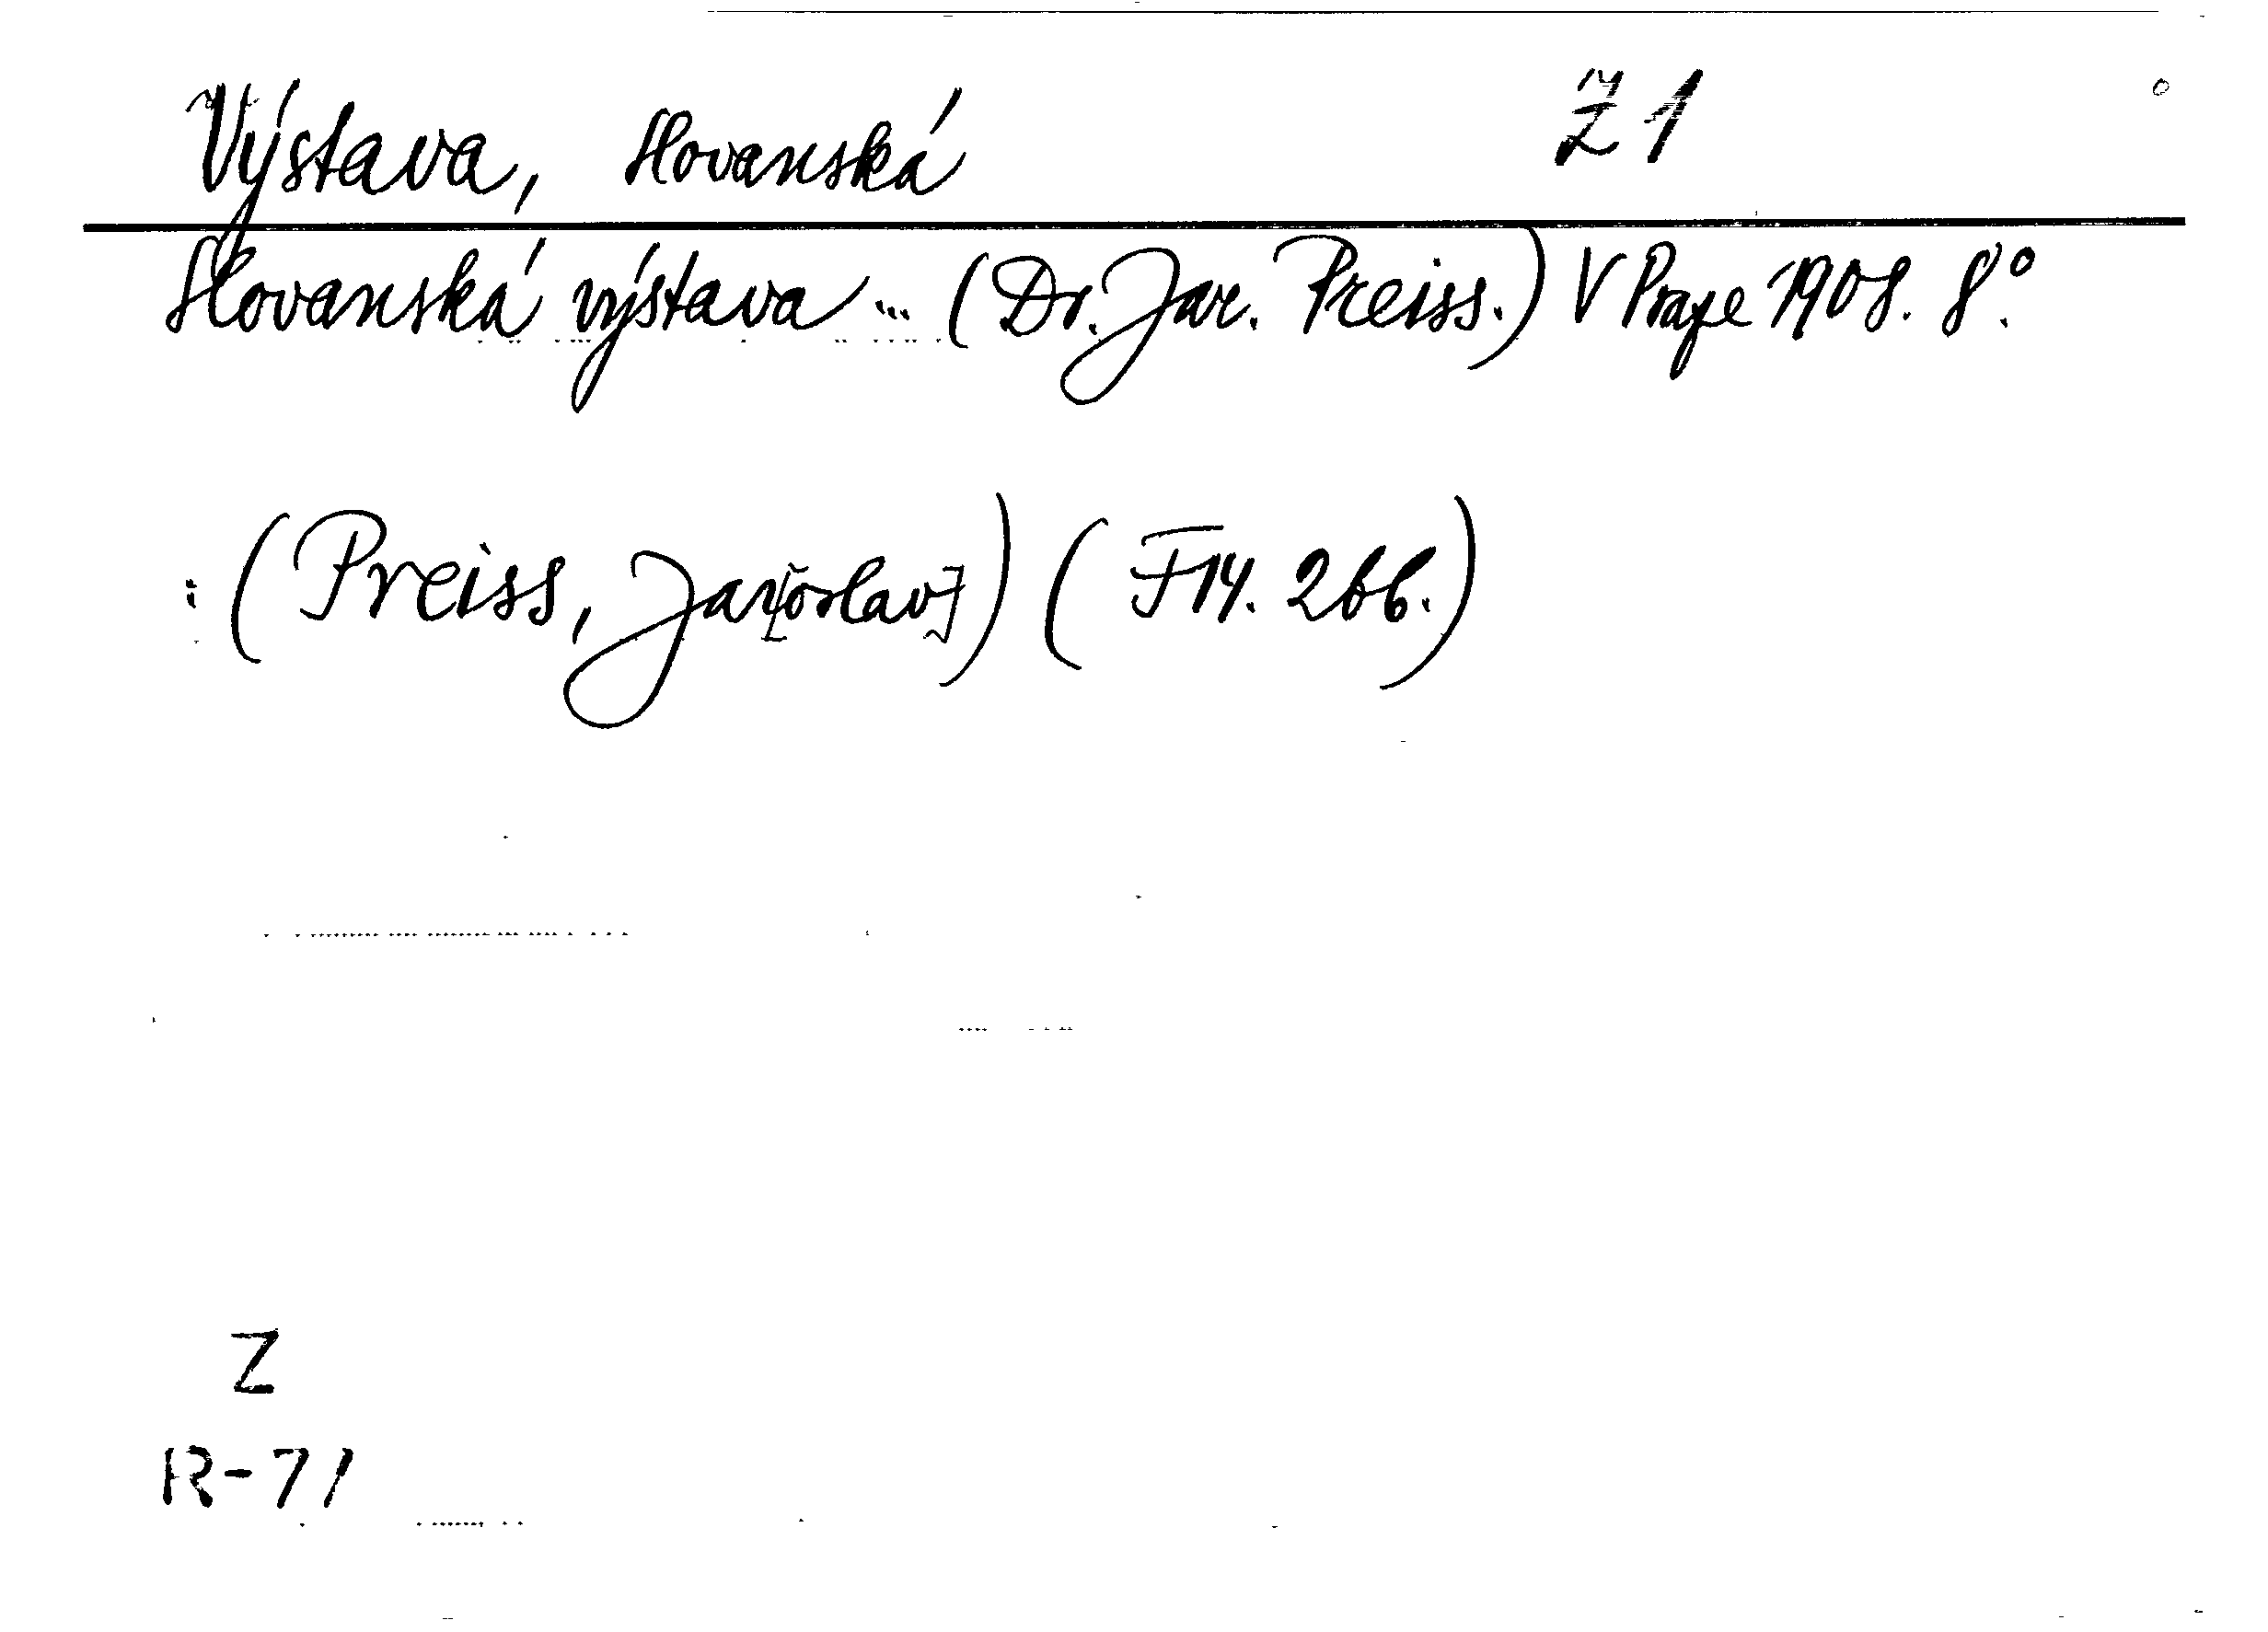 Výstava, slovanská Ž 1
Slovanská výstava ... (Dr. Jar. Preiss.) V Praze 1908. 8°.
: (Preiss, Jar[oslav]) (F 14. 266.)
Z
R-71